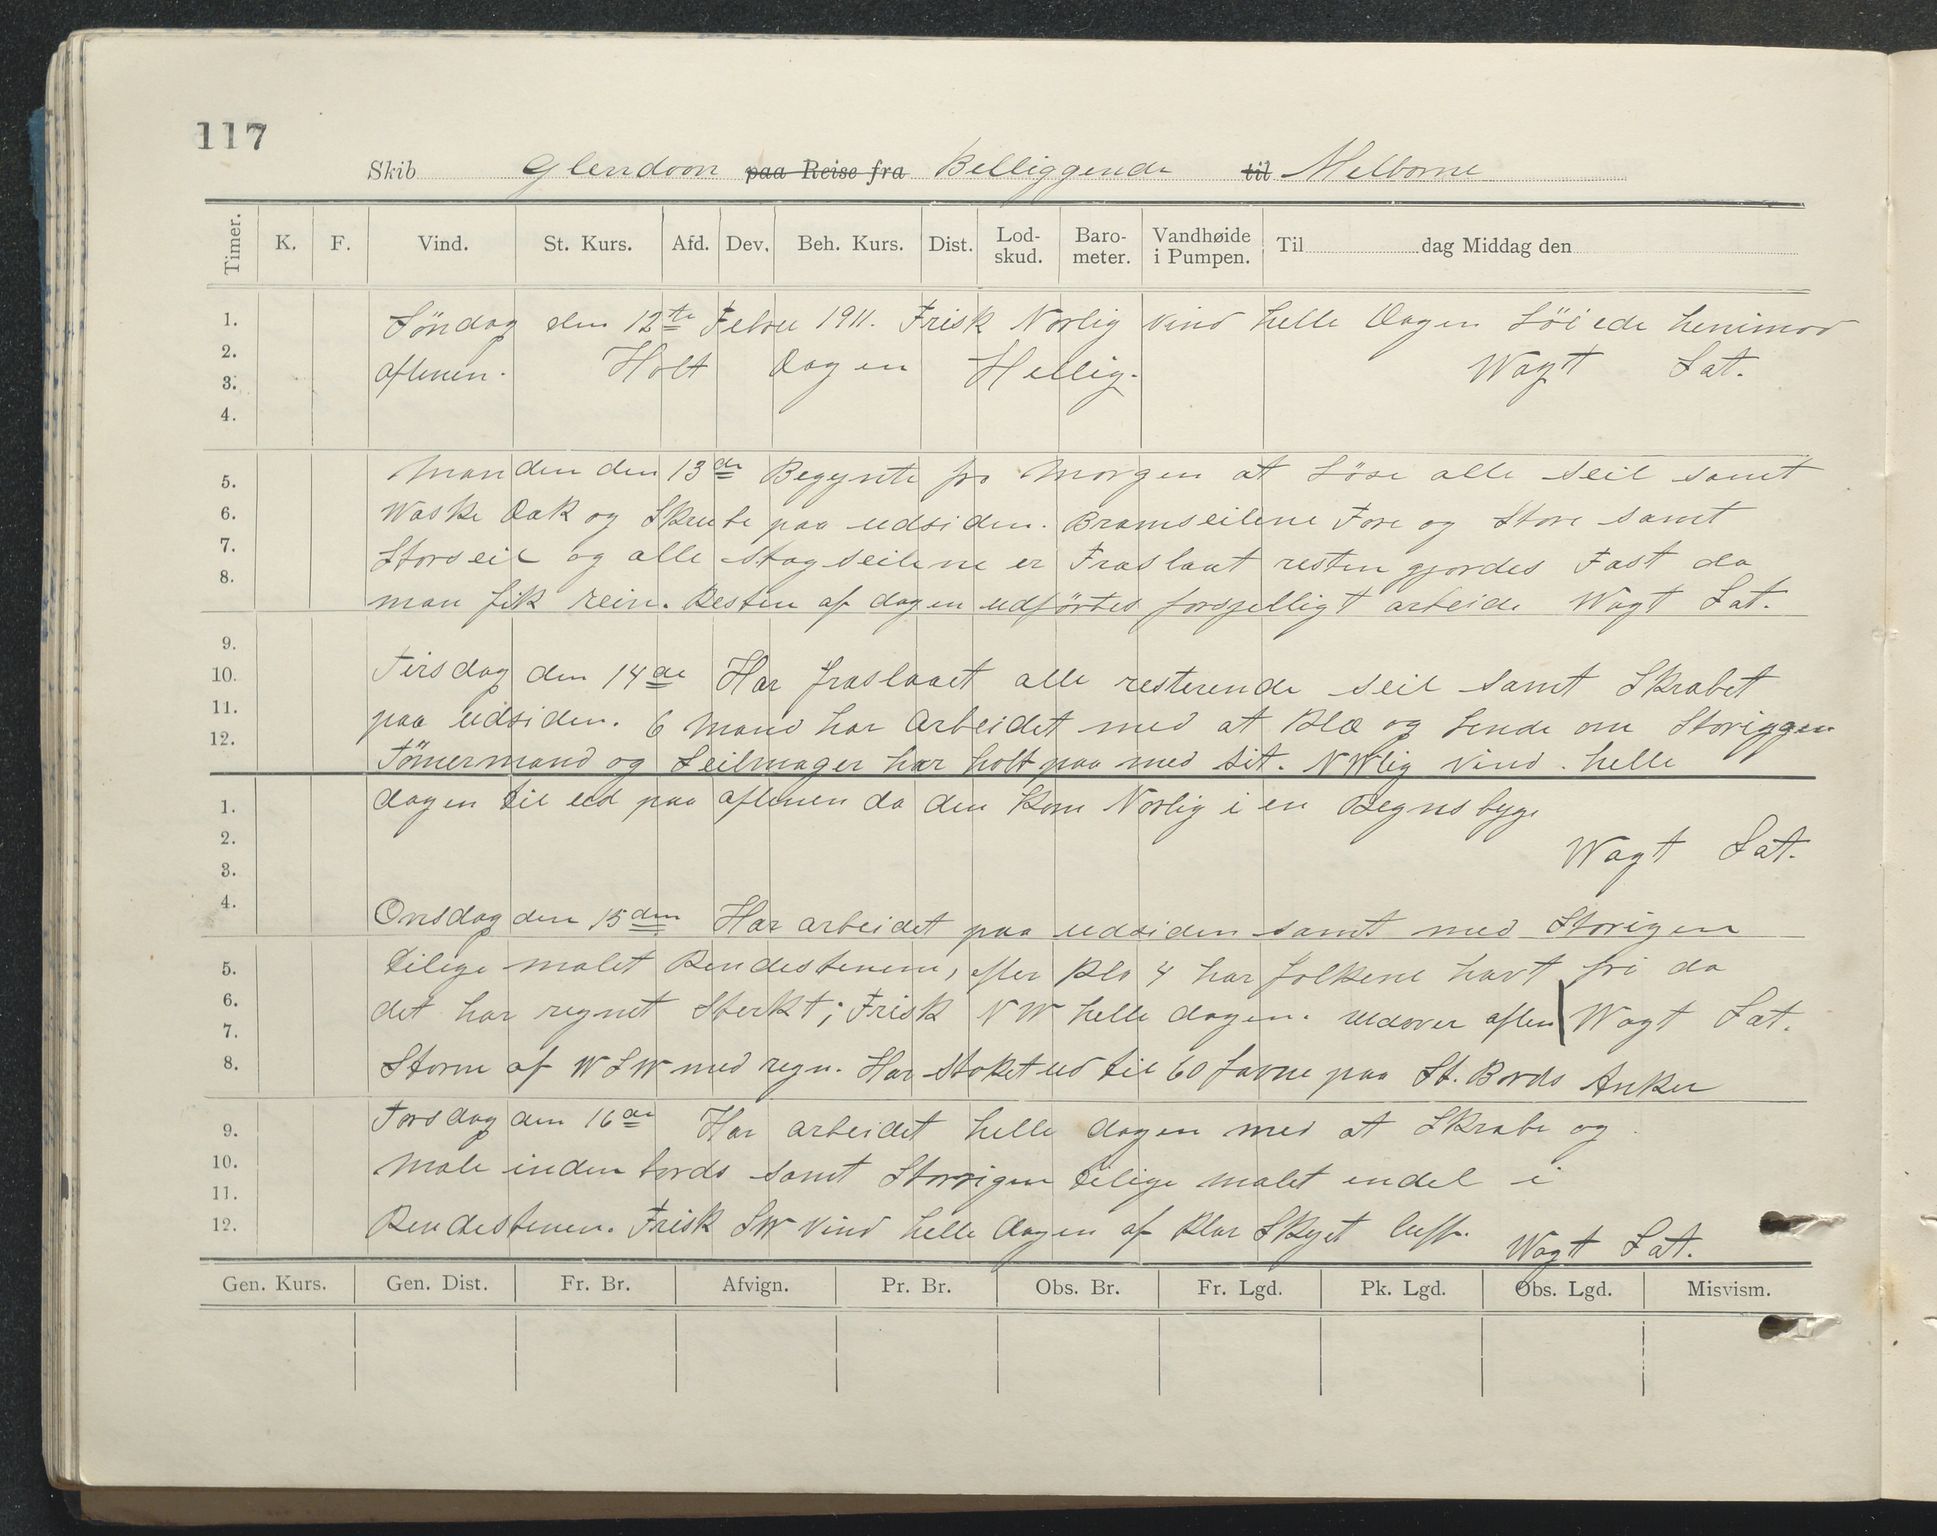 117
Skib Glendoon paa Reise fra Belliggende til Melborne
Timer. K. F. Vind. St. Kurs. Afd. Dev. Beh. Kurs. Dist. Lod-skud. Baro-meter. Vandhøide i Pumpen. Til dag Middag den
1.
2.
3.
4.
Söndag den 12te Febru 1911. Frisk Norlig vind helle Dagen Löiede henimod
aftenen. Holt Dagen Hellig. Wagt Sat.
5.
6.
7.
8.
Manden den 13de Begynte fra Morgen at Löse alle Seil samt
Waske Dæk og Skeute paa udsiden. Bramseilene Fore og Store samt
Storseil og alle stagseilene er Fraslaat resten gjordes Fast da
man fik rein. Resten af dagen udførtes forsjelligt arbeide Wagt Sat.
9.
10.
11.
12.
Tirsdag den 14de Har fraslaaet alle resterende seil samt Skrabet
paa udsiden. 6 Mand har Arbeidet med at Klæ og Sende om Storiggen
Tömermand og Seilmager har holt paa med sit. NWlig vind helle
1.
2.
3.
4.
dagen til ud paa aftenen da den kom Norlig i en Regnsbyge
Wagt Sat.
Onsdag den 15den Har arbeidet paa udsiden samt med Storigen
5.
6.
7.
8.
tilige malet Rendestenene, efter Klo 4 har folkene havt fri da
det har regnet Sterkt; Frisk NW helle dagen. udover aften Wagt Sat.
Storm af WSW med regn. Har stoket ud til 60 favne paa St. Bords Anker
9.
10.
11.
12.
Torsdag den 16de Har arbeidet helle dagen med at Skrabe og
Male inden bords samt Storrigen tilige malet endel i
Rendestenen. Frisk SW vind helle Dagen af Klar Skyet luft.
Wagt Sat.
Gen. Kurs. Gen. Dist. Fr. Br. Afvign. Pr. Br. Obs. Br. Fr. Lgd. Pk. Lgd. Obs. Lgd. Misvism.